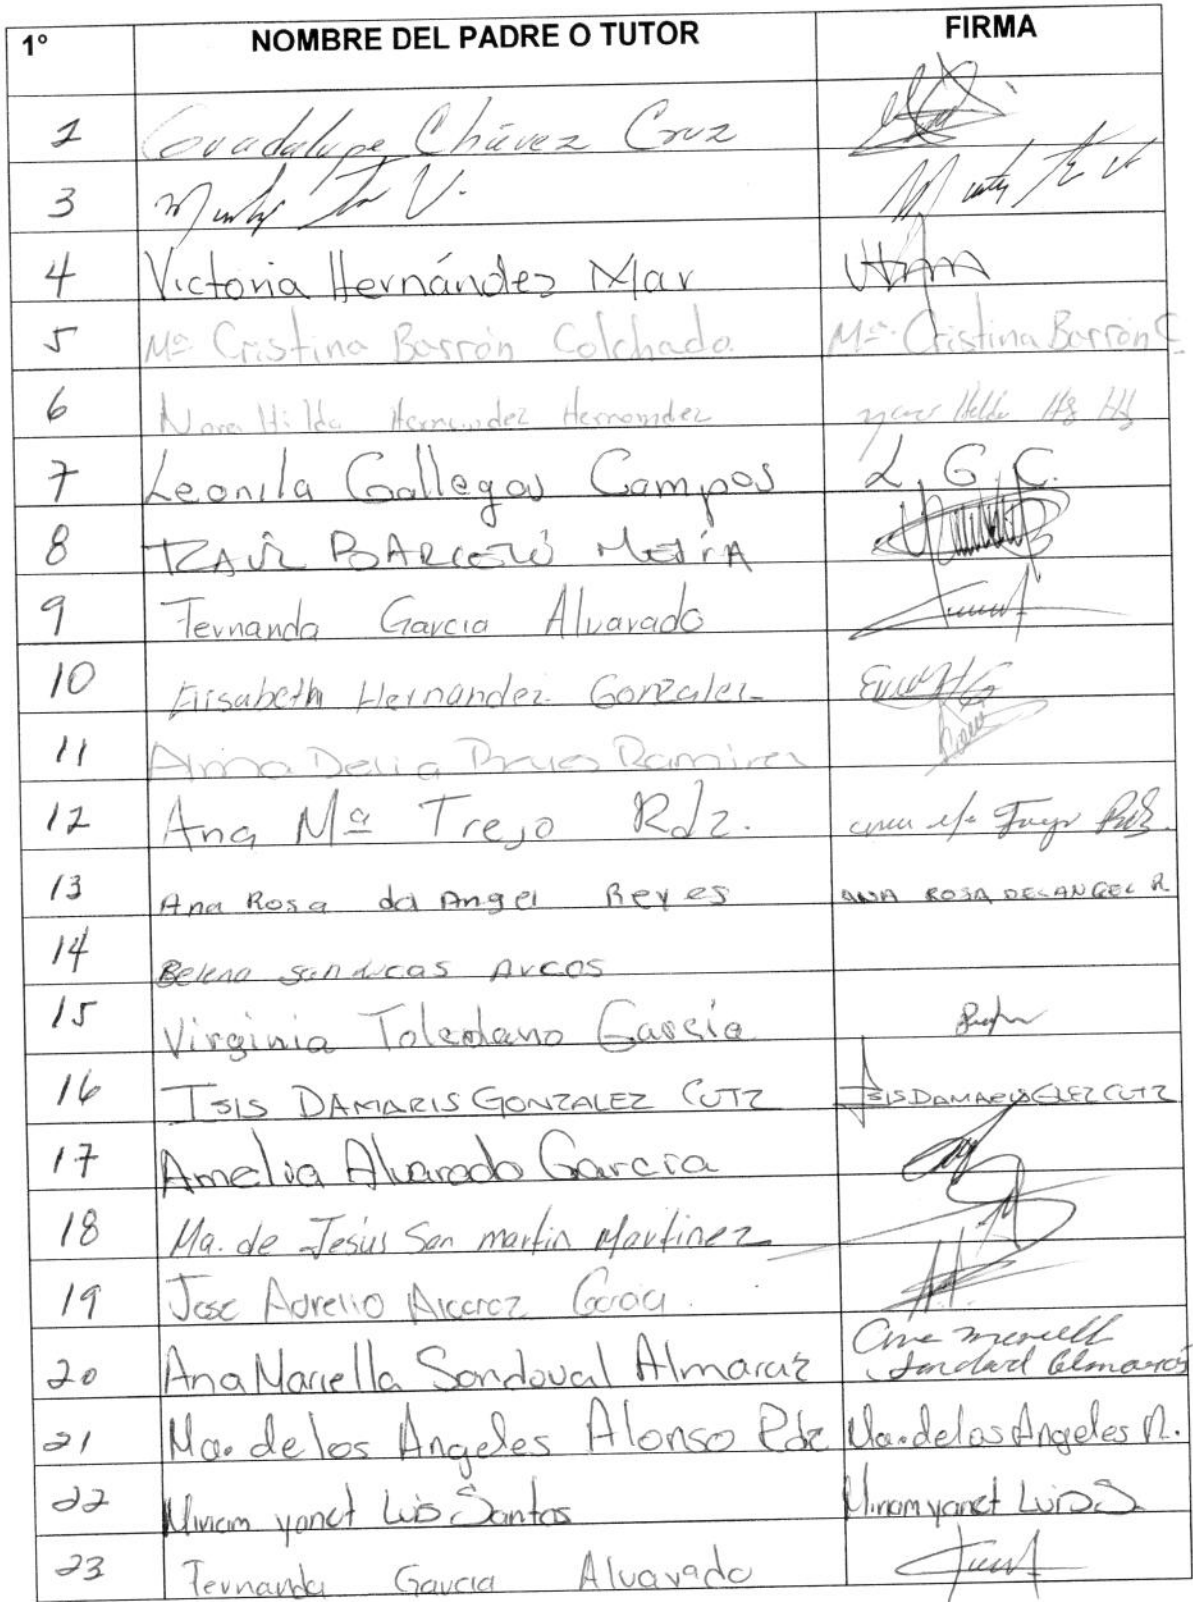 1° NOMBRE DEL PADRE O TUTOR FIRMA
2 Guadalupe Chávez Cruz
3
4 Victoria Hernández Mar
5 Mª Cristina Barrón Colchado. Mª. Cristina Barrón C
6 Nora Hilda Hernandez Hernandez
7 Leonila Gallegos Campos L. G. C.
8 RAÚL BARCELÓ MEJÍA
9 Fernanda Garcia Alvarado
10 Elisabeth Hernandez Gonzalez
11 Alma Delia Ramirez
12 Ana Mª Trejo Rdz.
13 Ana Rosa del Angel Reyes ANA ROSA DEL ANGEL R
14 San Lucas Arcos
15 Virginia Toledano García
16 ISIS DAMARIS GONZALEZ CUTZ ISIS DAMARIS GLEZ CUTZ
17 Amelia Alvarado Garcia
18 Ma. de Jesús San martin Martinez
19 Jose Aurelio Alcaraz
20 Ana Mariella Sandoval Almaraz
21 Ma. de los Angeles Alonso Rdz Ma. de los Angeles A.
22 Miriam yanet Luis Santos Miriam yanet Luis S
23 Fernanda Garcia Alvarado